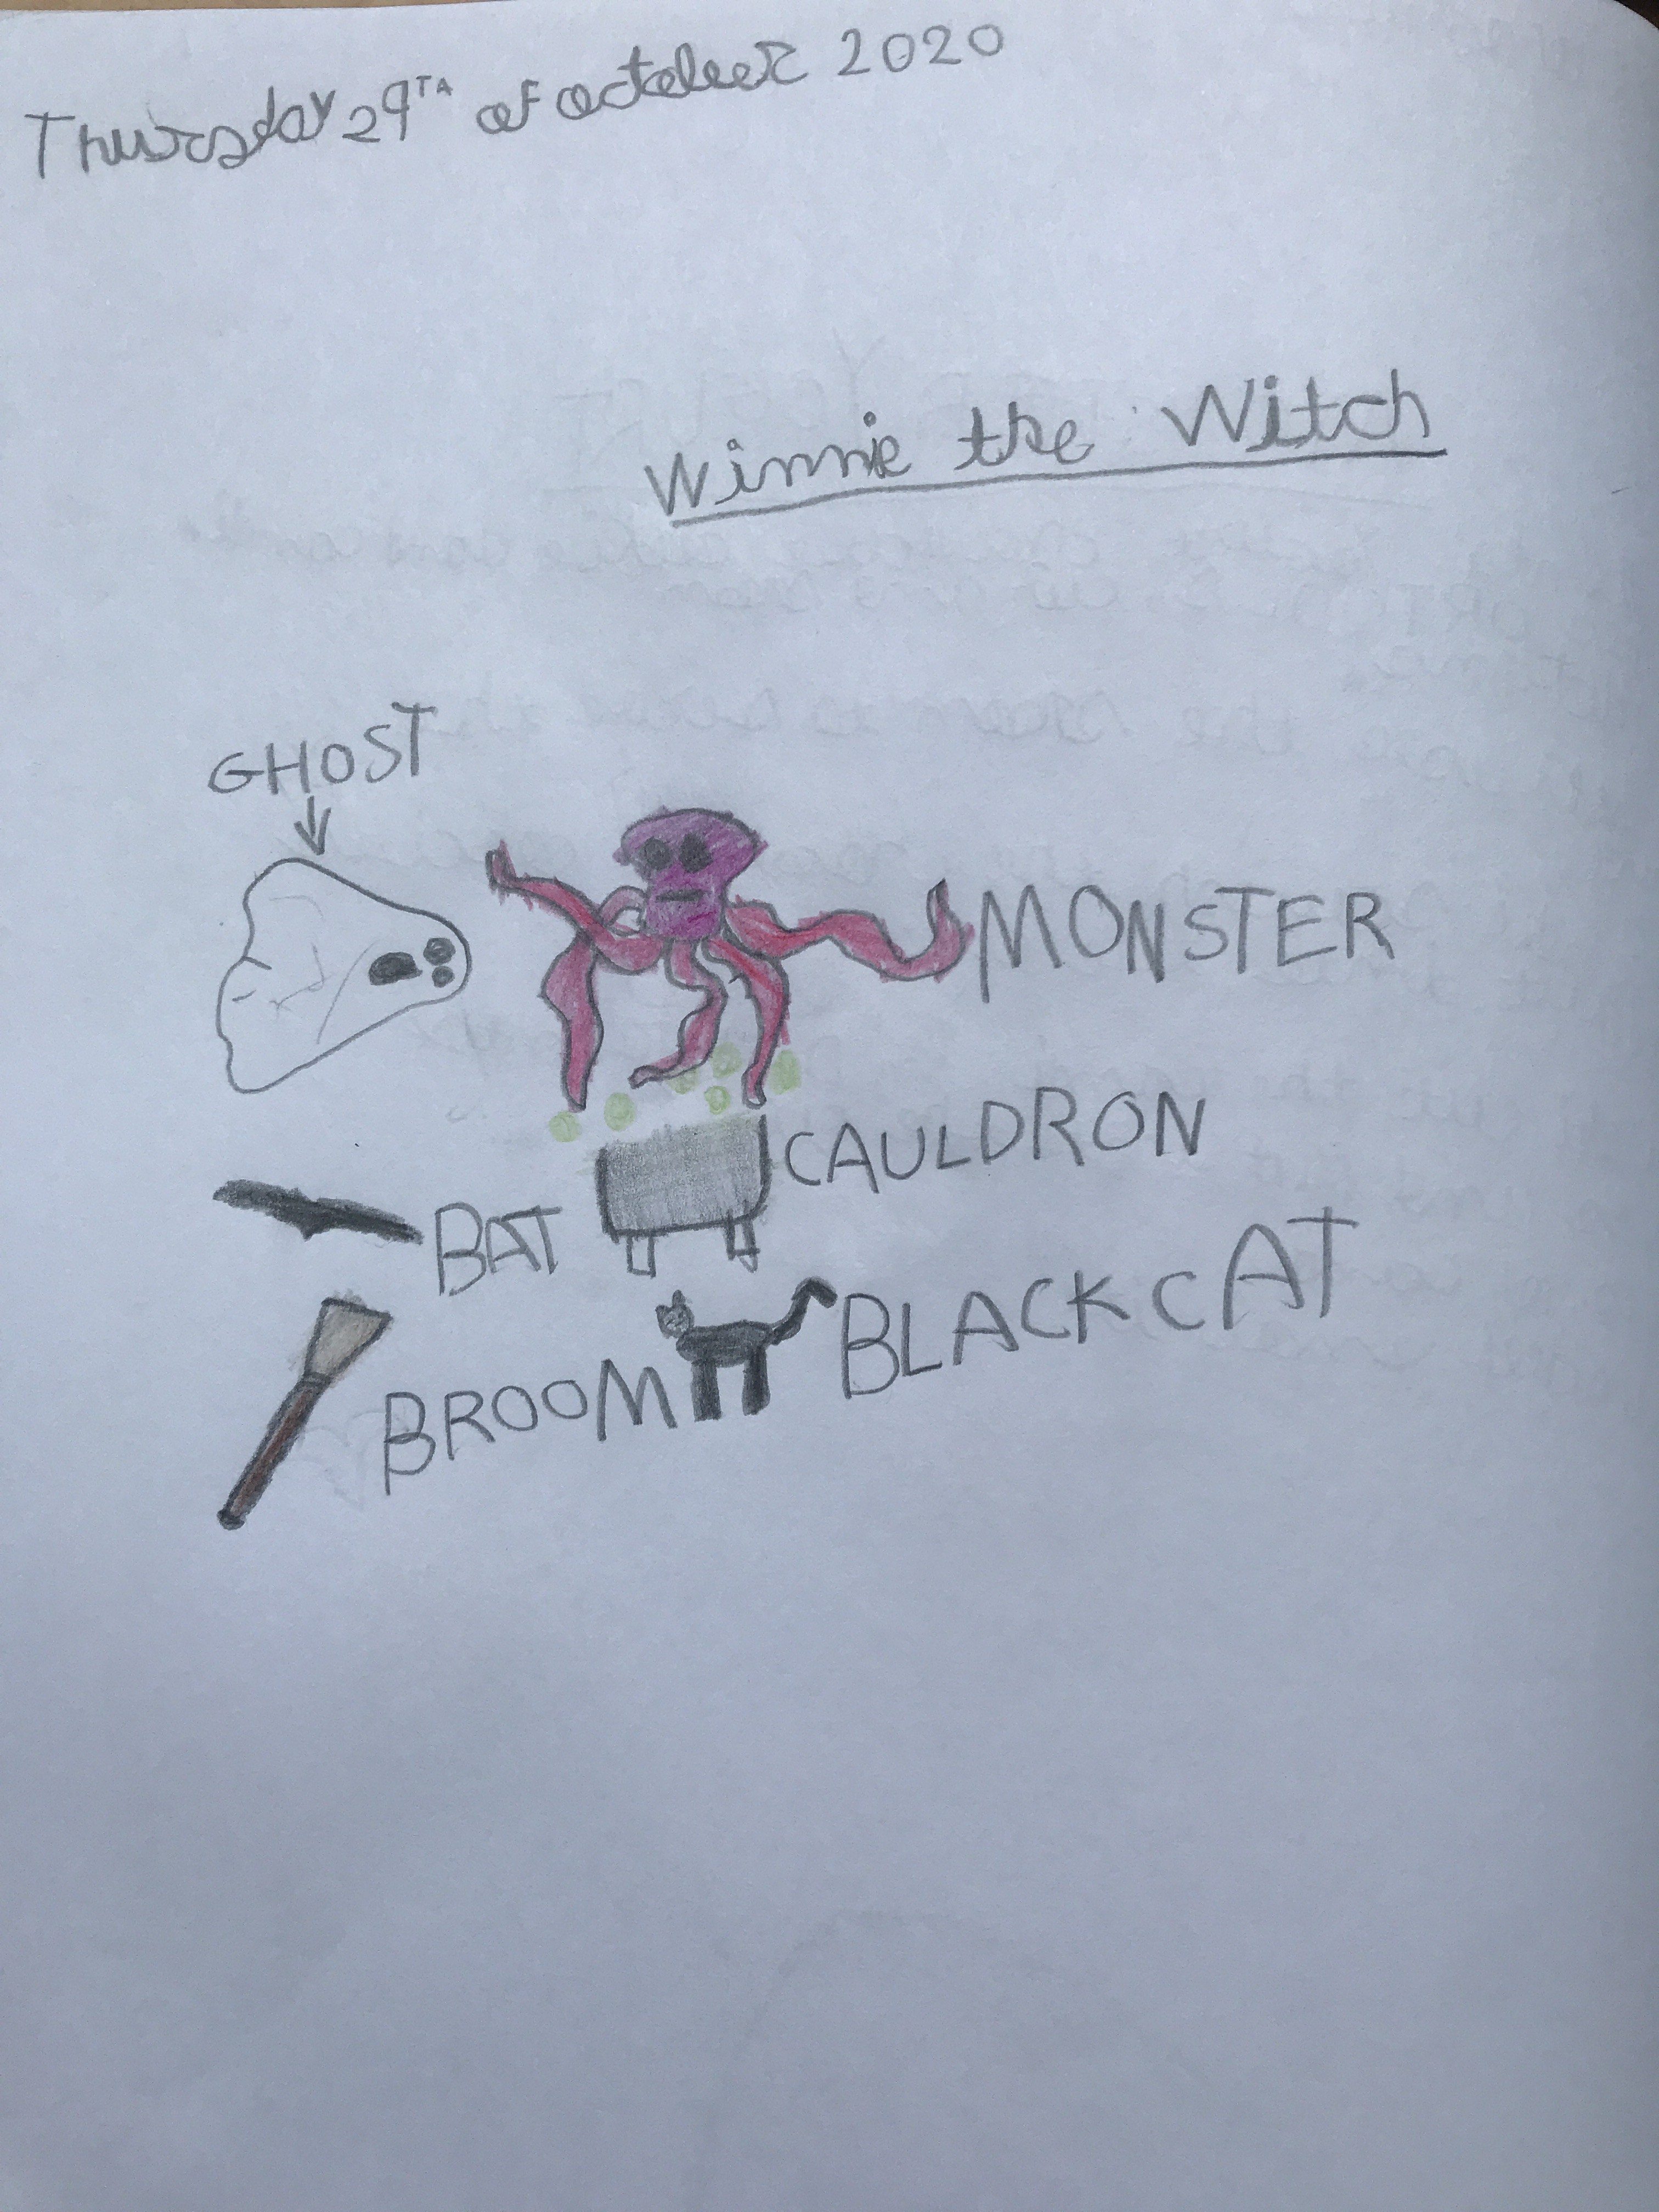 Thursday 29TH of october 2020
Winnie the Witch
GHOST
MONSTER
CAULDRON
BAT
BLACK CAT
BROOM